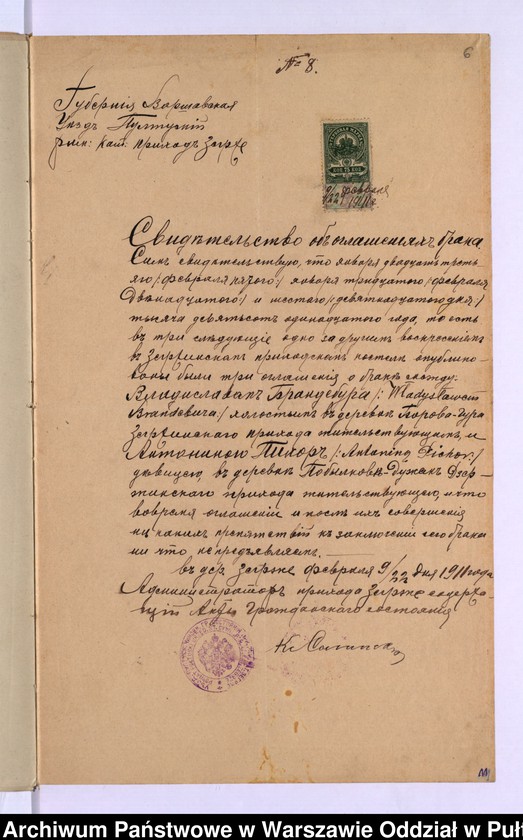 6
№ 8.
Губернія Варшавская
Уѣздъ Пултускій
рим: кат: приходъ Зегрже
9/22 февраля
1911 г.
Свидѣтельство объ оглашеніяхъ брака
Симъ свидѣтельствую, что января двадцать треть-
яго /: февраля пятого :/ января тридцатого /: февраля
двѣнадцатого :/ и шестого /: девятнадцатого дня :/
тысяча девятьсотъ одинадцатого года, то есть
въ три слѣдующіе одно за другимъ воскресенія
въ Зегржинскомъ приходскомъ костелѣ опублико-
ваны были три оглашенія о бракѣ между:
Владиславомъ /: Władysławem
:/ холостымъ въ деревнѣ -Гура
Зегржинскаго прихода жительствующимъ, и
Антониною Пихоръ /: Antoniną Pichor :/
дѣвицею, въ деревнѣ Побылково-
прихода жительствующею, и что
во время оглашеній и послѣ ихъ совершенія
ни какихъ препятствій къ заключенію сего брака
ни что не предъявлялъ.
въ дер. Зегрже февраля 9/22 дня 1911 года
Администраторъ прихода Зегрже содержа-
щій Акты Гражданского состоянія
Кс.
Archiwum Państwowe w Warszawie Oddział w Pułt